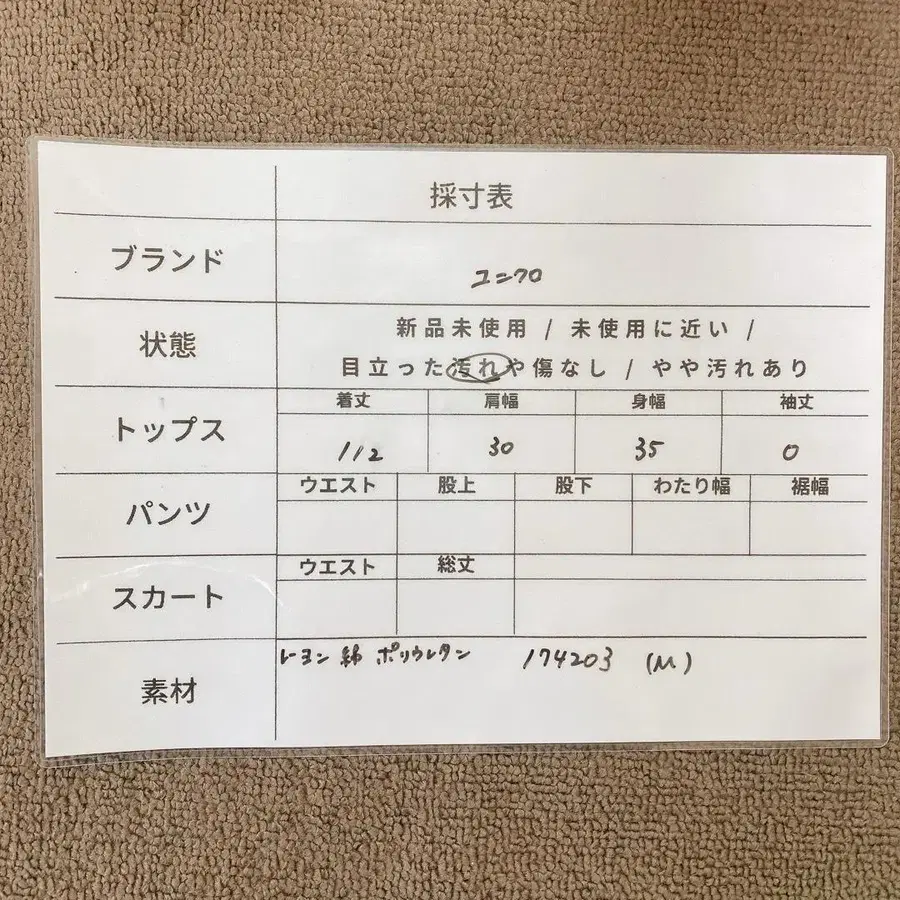 採寸表
ブランド
ユニクロ
状態
新品未使用 / 未使用に近い /
目立った汚れや傷なし / やや汚れあり
トップス
着丈 肩幅 身幅 袖丈
112 30 35 0
パンツ
ウエスト 股上 股下 わたり幅 裾幅
スカート
ウエスト 総丈
素材
レーヨン 綿 ポリウレタン 174203 (M)